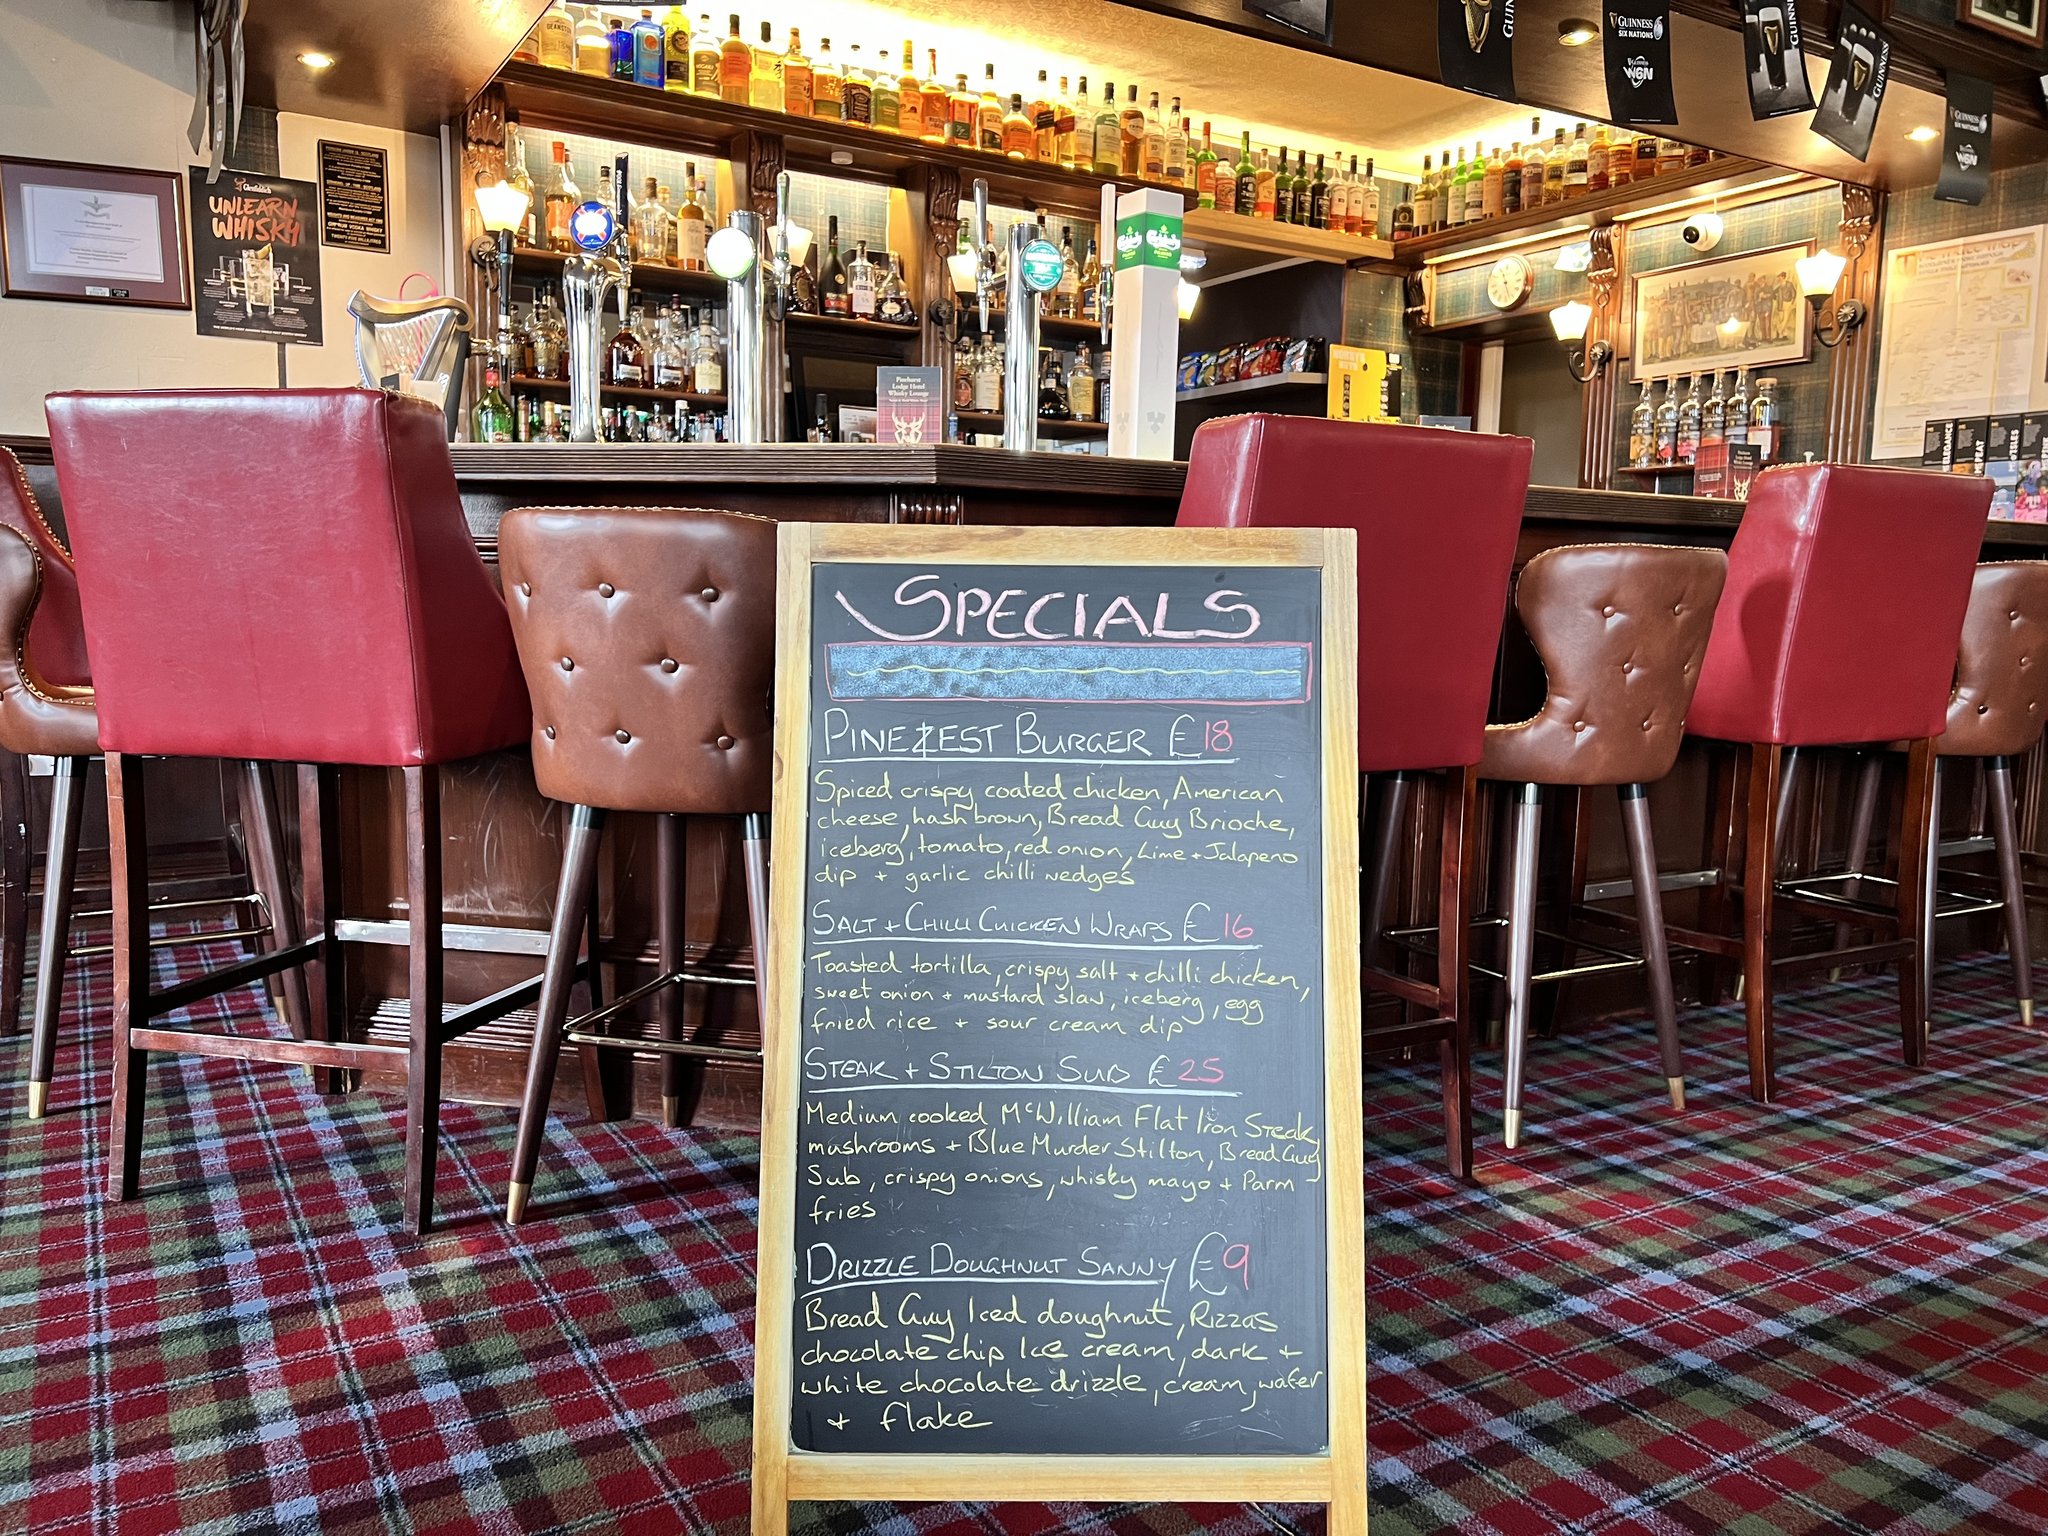 DEANSTON
GUINNESS
GUINNESS
SIX NATIONS
W6N
GUINNESS
GUINNESS
GUINNESS
SIX NATIONS
W6N
Glenfiddich
UNLEARN
WHISKY
TWENTY-FIVE MILLILITRES
Carlsberg
Carlsberg
JURA
JURA
Pinehurst
Lodge Hotel
Whisky Lounge
SPECIALS
PINEZEST BURGER £18
Spiced crispy coated chicken, American
cheese, hash brown, Bread Guy Brioche,
iceberg, tomato, red onion, Lime + Jalapeno
dip + garlic chilli wedges
SALT + CHILLI CHICKEN WRAPS £16
Toasted tortilla, crispy salt + chilli chicken,
sweet onion + mustard slaw, iceberg, egg
fried rice + sour cream dip
STEAK + STILTON SUB £25
Medium cooked McWilliam Flat Iron Steak,
mushrooms + Blue Murder Stilton, Bread Guy
Sub, crispy onions, whisky mayo + Parm
fries
DRIZZLE DOUGHNUT SANNY £9
Bread Guy Iced doughnut, Rizzas
chocolate chip Ice cream, dark +
white chocolate drizzle, cream, wafer
+ flake